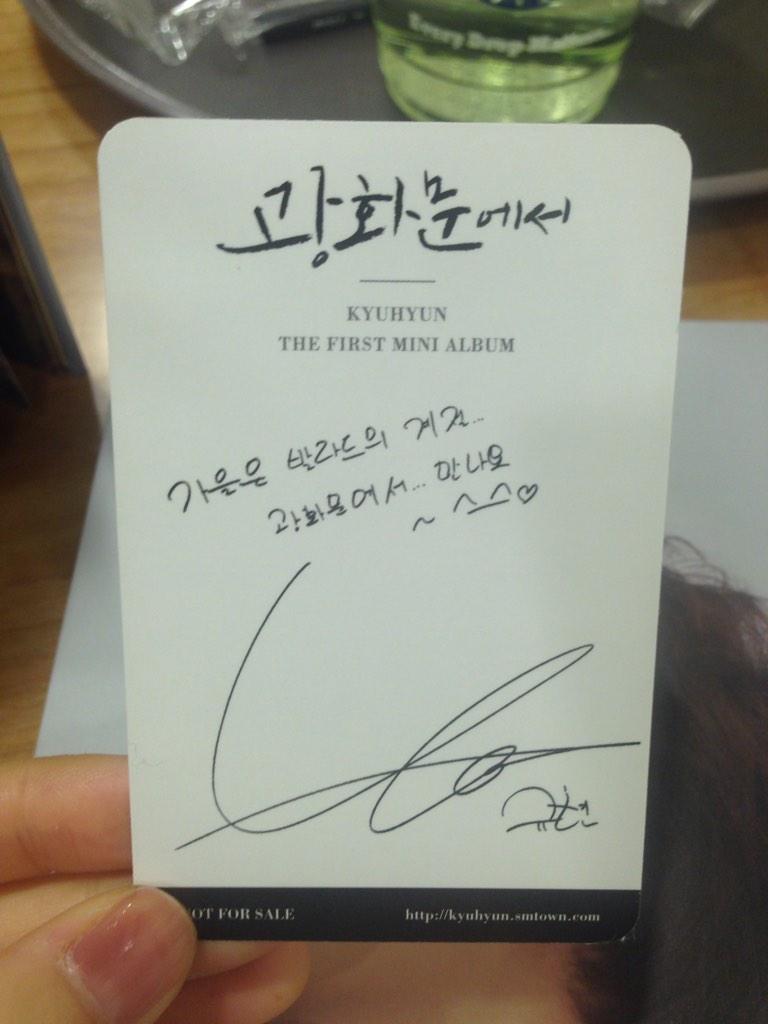 Every Drop Matters
광화문에서
KYUHYUN
THE FIRST MINI ALBUM
가을은 발라드의 계절...
광화문에서... 만나요
~ ^^♡
규현
NOT FOR SALE
http://kyuhyun.smtown.com